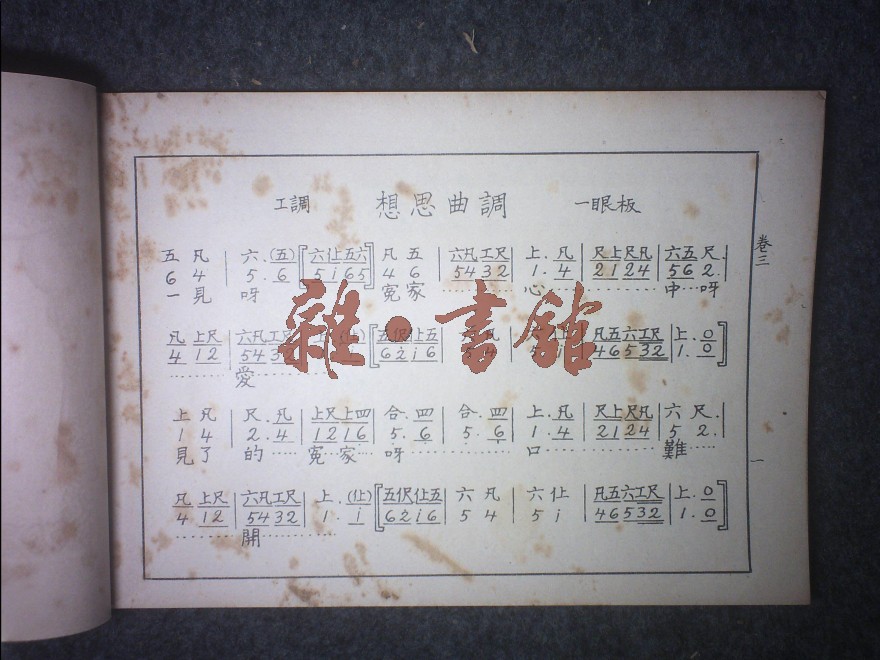 工調 想思曲調 一眼板
卷三
五 凡 | 六 . (五) [六 仩 五 六] 凡 五 | 六凡工尺 | 上 . 凡 | 尺上尺凡 | 六五 尺 . |
6 4 | 5 . 6 [5 i 6 5] 4 6 | 5432 | 1 . 4 | 2124 | 56 2 . |
一 見 呀 冤 家 ……… 心 ……… 中 … 呀
凡 上尺 | 六凡工尺 | [五伬仩五] 凡五六工尺 | 上 . 0 ]
4 12 | 5432 | [62i6] 46532 | 1 . 0 ]
……… 愛 ………
上 凡 | 尺 . 凡 | 上尺上四 | 合 . 四 | 合 . 四 | 上 . 凡 | 尺上尺凡 | 六 尺 . |
1 4 | 2 . 4 | 1216 | 5 . 6 | 5 . 6 | 1 . 4 | 2124 | 5 2 . |
見 了 的 …… 冤 … 家 … 呀 ……… 口 ……… 難 ……
凡 上尺 | 六凡工尺 | 上 . (仩) [五伬仩五] 六 凡 | 六 仩 | 凡五六工尺 | 上 . 0 ]
4 12 | 5432 | 1 . i [62i6] 5 4 | 5 i | 46532 | 1 . 0 ]
……… 開 ………
一
雜·書館